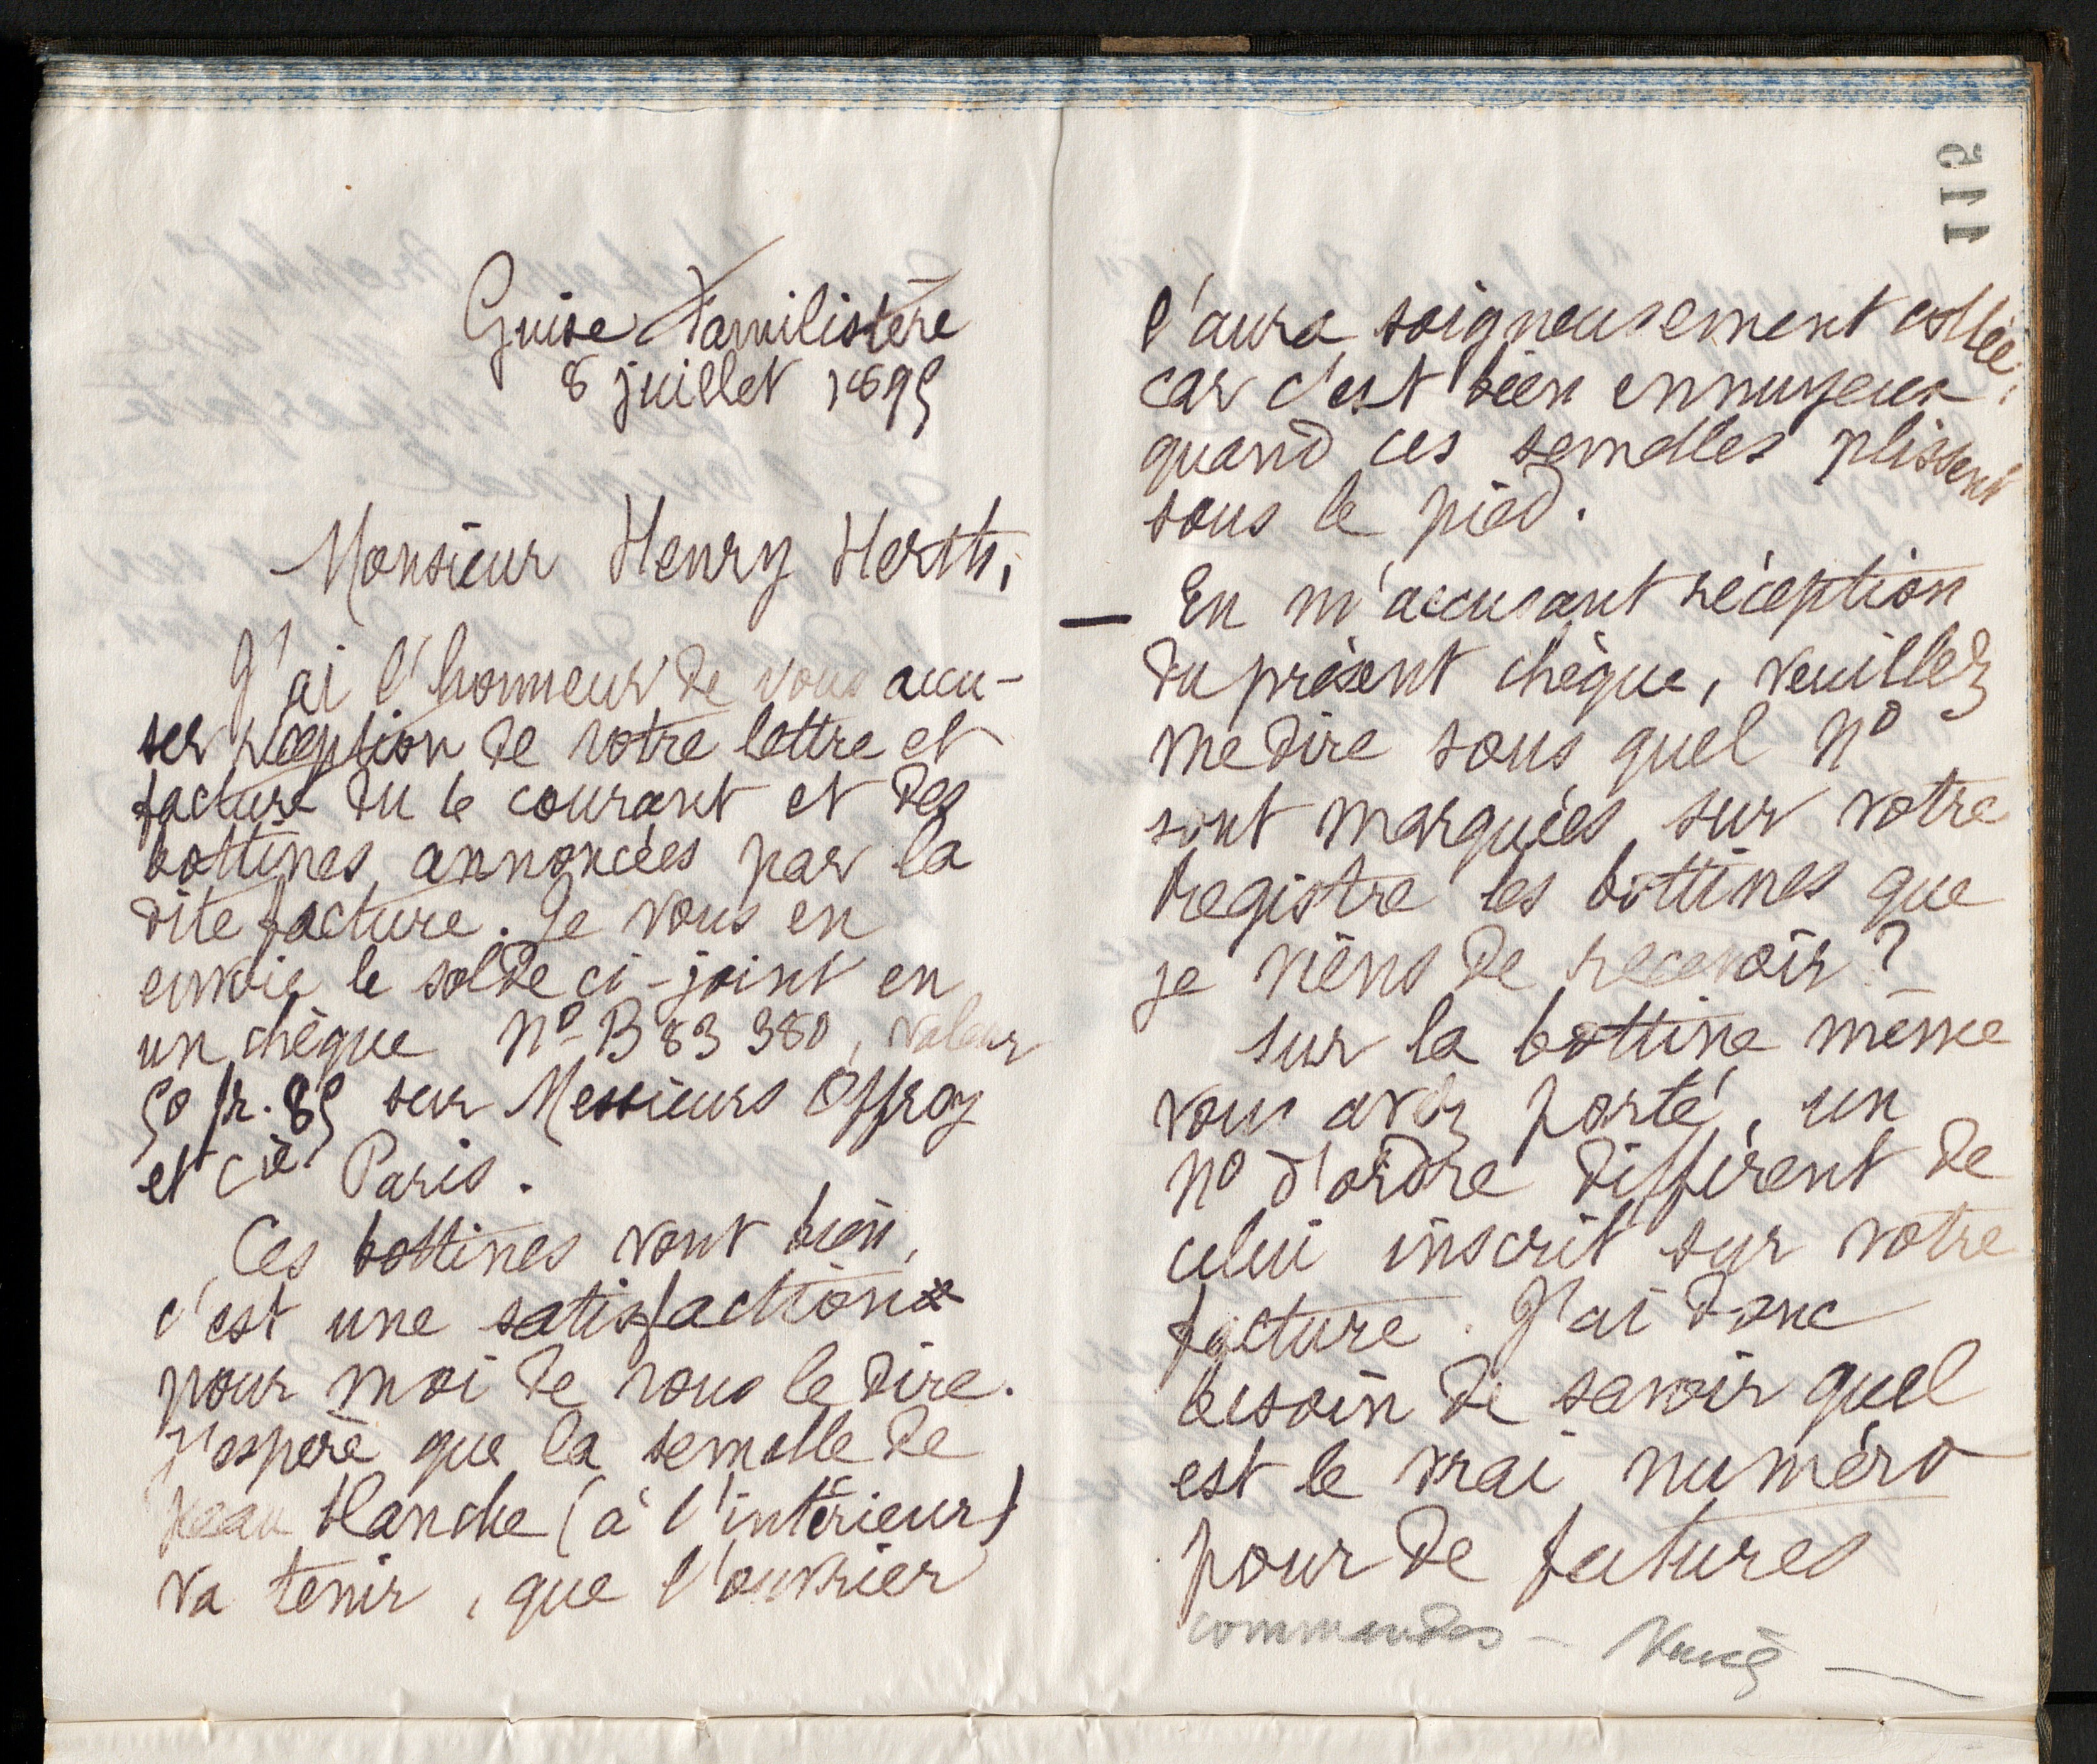 Guise Familistère
8 juillet 1895
Monsieur Henry Herth,
J'ai l'honneur de vous accu-
ser réception de votre lettre et
facture du 6 courant et des
bottines annoncées par la
dite facture. Je vous en
envoie le solde ci-joint en
un chèque Nº B 83 380, valeur
50 fr. 85 sur Messieurs Offroy
et Cie Paris.
Ces bottines vont bien,
c'est une satisfaction
pour moi de vous le dire.
J'espère que la semelle de
peau blanche (à l'intérieur)
va tenir, que l'ouvrier
115
l'aura soigneusement collée,
car c'est bien ennuyeux
quand ces semelles plissent
sous le pied.
— En m'accusant réception
du présent chèque, veuillez
me dire sous quel Nº
sont marquées sur votre
registre les bottines que
je viens de recevoir ?
Sur la bottine même
vous avez porté, un
Nº d'ordre différent de
celui inscrit sur votre
facture. J'ai donc
besoin de savoir quel
est le vrai numéro
pour de futures
commandes –